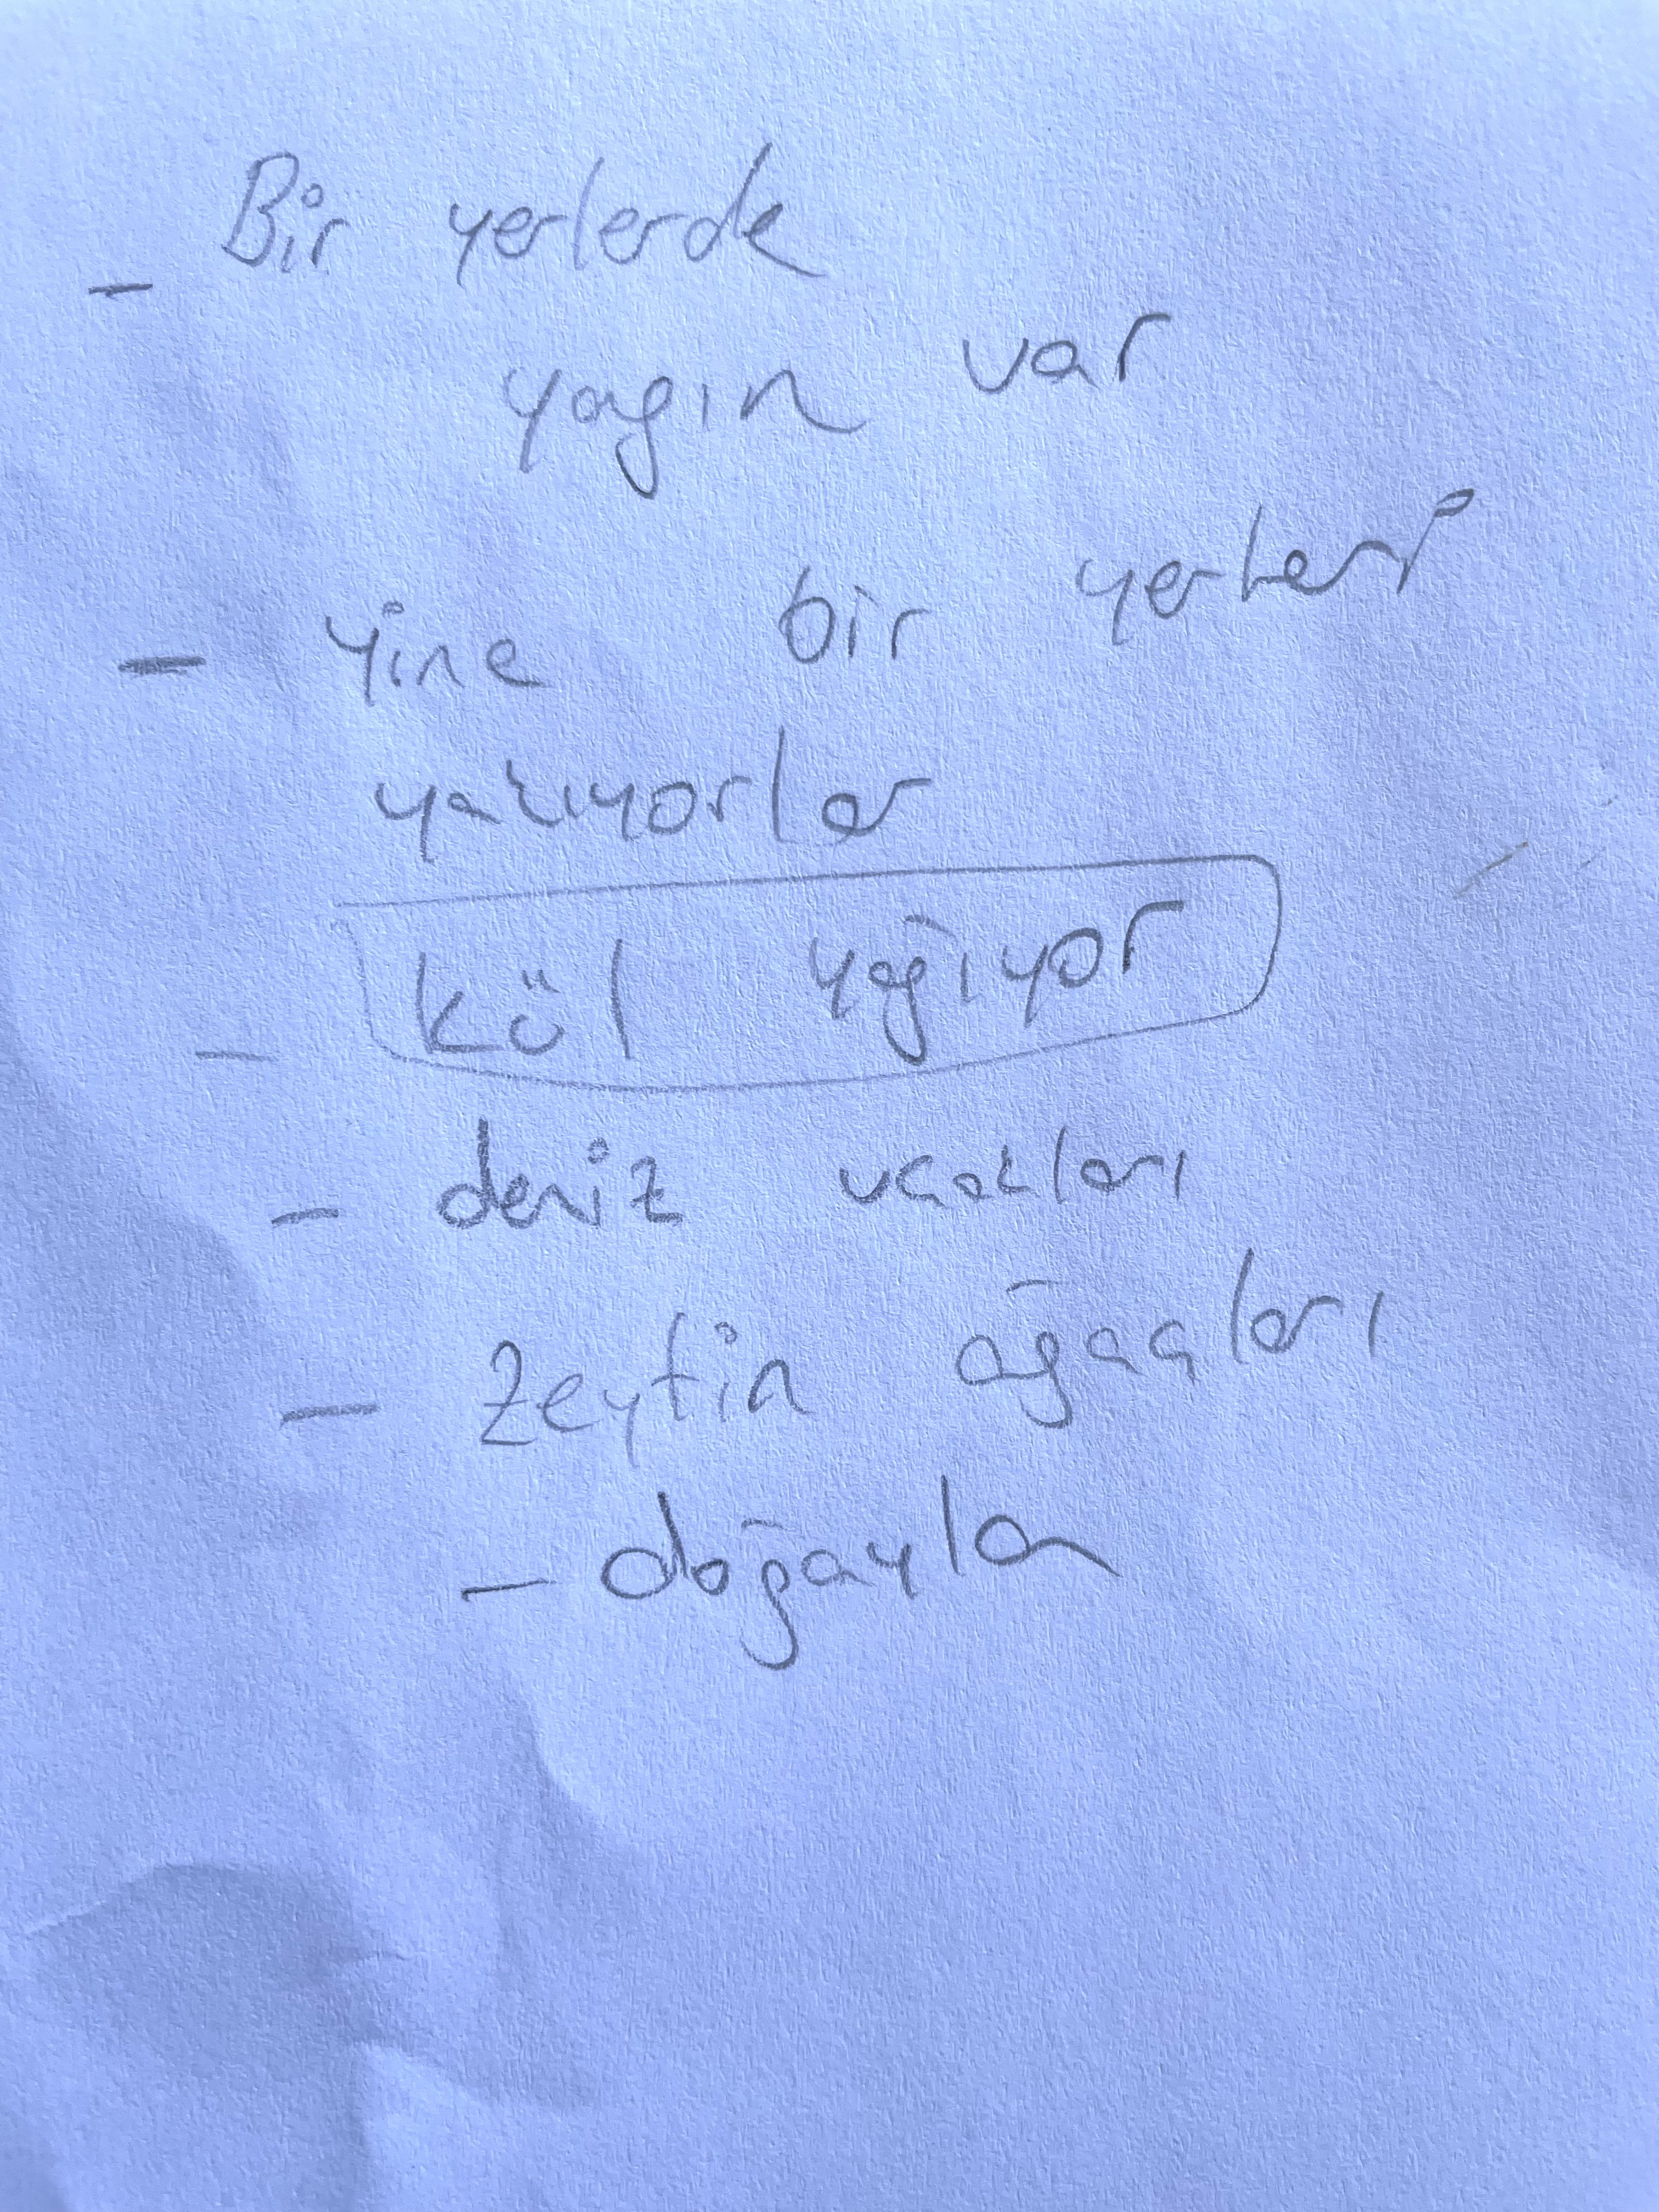 - Bir yerlerde
yagın var
- Yine bir yerleri
yakıyorlar
- kül yağıyor
- deniz ucakları
- Zeytin ağaçları
- doğayla